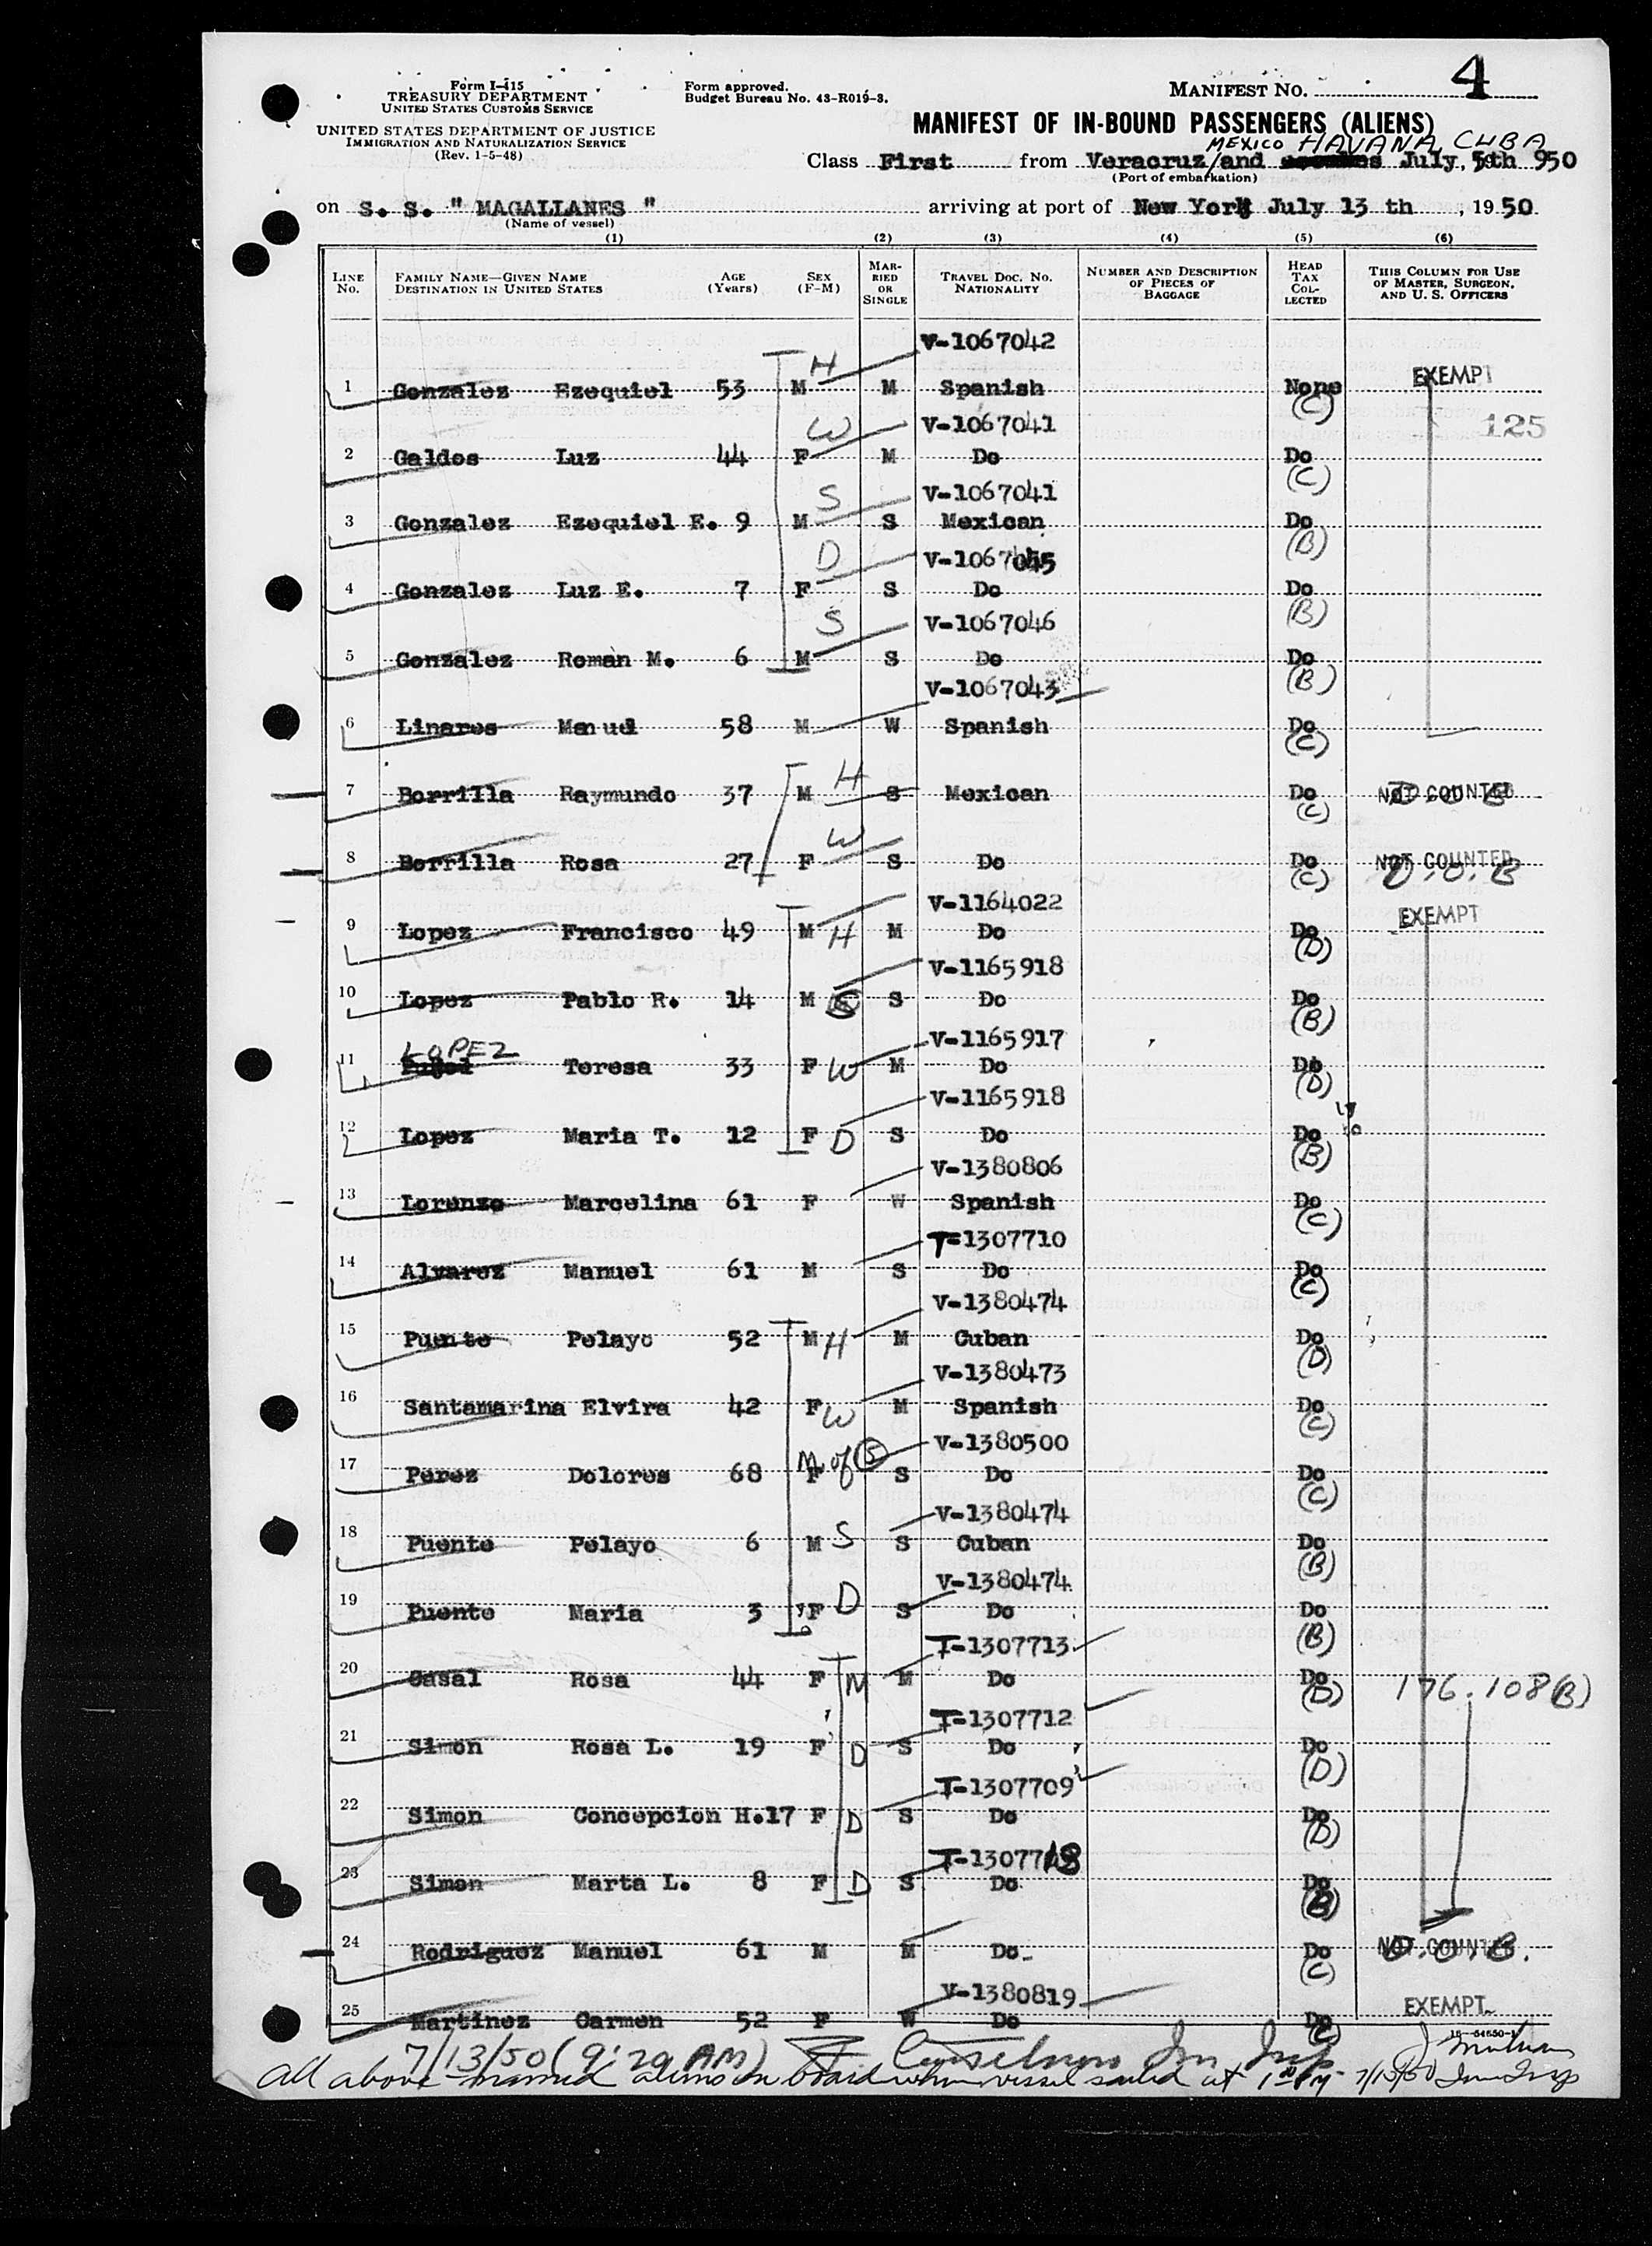 4
Form I-415
TREASURY DEPARTMENT
UNITED STATES CUSTOMS SERVICE
UNITED STATES DEPARTMENT OF JUSTICE
IMMIGRATION AND NATURALIZATION SERVICE
(Rev. 1-5-48)
Form approved.
Budget Bureau No. 43-R019-3.
MANIFEST NO.
MANIFEST OF IN-BOUND PASSENGERS (ALIENS)
MEXICO HAVANA, CUBA
Class First from Veracruz/and July, 5th 950
(Port of embarkation)
on S. S. " MAGALLANES " arriving at port of New York July 13 th , 1950
(Name of vessel)
(1) (2) (3) (4) (5) (6)
LINE NO. FAMILY NAME—GIVEN NAME DESTINATION IN UNITED STATES AGE (Years) SEX (F-M) MARRIED OR SINGLE TRAVEL DOC. NO. NATIONALITY NUMBER AND DESCRIPTION OF PIECES OF BAGGAGE HEAD TAX COLLECTED THIS COLUMN FOR USE OF MASTER, SURGEON, AND U. S. OFFICERS
V-1067042
1 Gonzalez Ezequiel 53 M H M Spanish None (C) EXEMPT
V-1067041 125
2 Galdos Luz 44 F W M Do Do (C)
V-1067041
3 Gonzalez Ezequiel E. 9 M S S Mexican Do (B)
V-1067045
4 Gonzalez Luz E. 7 F D S Do Do (B)
V-1067046
5 Gonzalez Roman M. 6 M S S Do Do (B)
V-1067043
6 Linares Manuel 58 M W Spanish Do (C)
7 Borrilla Raymundo 37 M H S Mexican Do (C) NOT COUNTED
8 Borrilla Rosa 27 F W S Do Do (C) NOT COUNTED D.O.B
V-1164022
9 Lopez Francisco 49 M H M Do Do (D) EXEMPT
V-1165918
10 Lopez Pablo R. 14 M S S Do Do (B)
V-1165917
11 LOPEZ Teresa 33 F W M Do Do (D)
V-1165918
12 Lopez Maria T. 12 F D S Do Do (B)
V-1380806
13 Lorenzo Marcelina 61 F W Spanish Do (C)
T-1307710
14 Alvarez Manuel 61 M S Do Do (C)
V-1380474
15 Puente Pelayo 52 M H M Cuban Do (D)
V-1380473
16 Santamarina Elvira 42 F W M Spanish Do (C)
V-1380500
17 Perez Dolores 68 F M of (15) S Do Do (C)
V-1380474
18 Puente Pelayo 6 M S S Cuban Do (B)
V-1380474
19 Puente Maria 3 F D S Do Do (B)
T-1307713
20 Casal Rosa 44 F M M Do Do (D) 176.108(B)
T-1307712
21 Simon Rosa L. 19 F D S Do Do (D)
T-1307709
22 Simon Concepcion H. 17 F D S Do Do (D)
T-1307713
23 Simon Marta L. 8 F D S Do Do (B)
24 Rodriguez Manuel 61 M M Do Do (C) NOT COUNTED D.O.B.
V-1380819
25 Martinez Carmen 52 F W Do Do (C) EXEMPT
16—54650-1
7/13/50 (9:20 AM) Im Insp
All above named aliens on board when vessel sailed at 7/13/50 Imm Insp